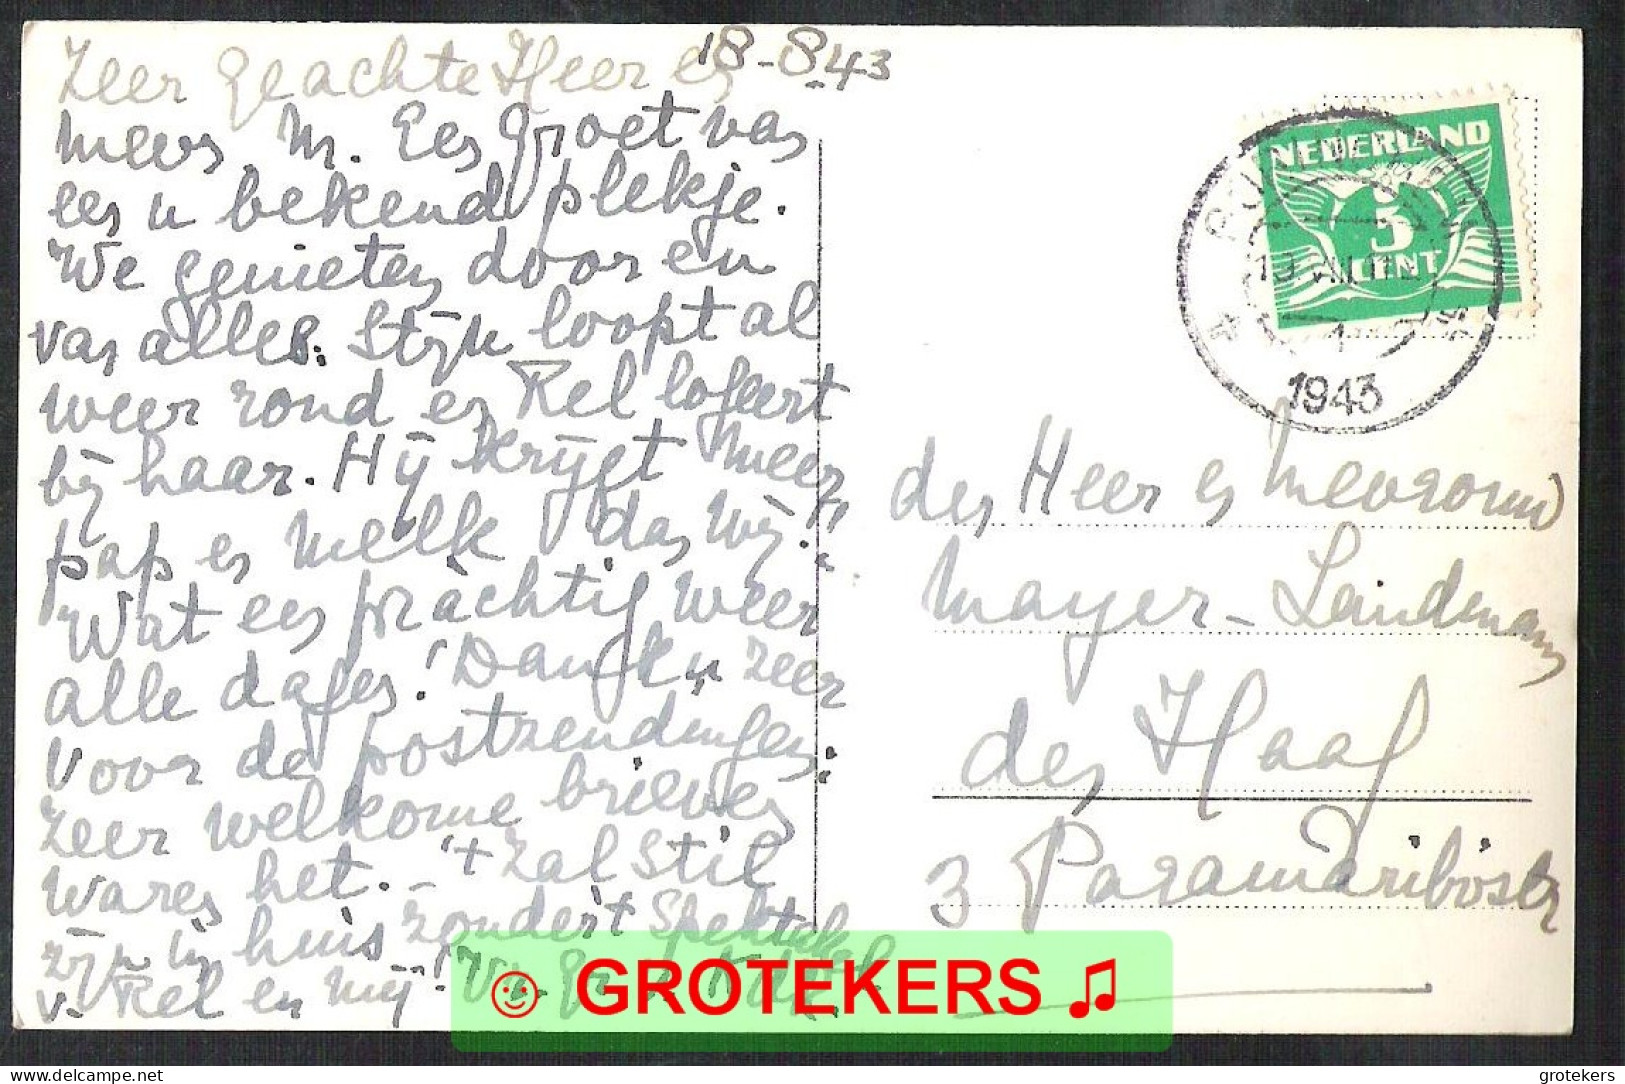 18-8-43
Zeer Geachte Heer en
Mevr. M. Een Groet van
een u bekend plekje.
We genieten door en
van alles. Stijn loopt al
weer rond en Rel logeert
bij haar. Hij krijgt meer
pap en melk dan wij."
Wat een prachtig weer
alle dagen! Dank u zeer
voor de postzendingen:
Zeer welkome brieven
waren het. - 't zal stil
zijn in huis zonder 't spektakel
v. Rel en mij! Vr. Gr.
den Heer en Mevrouw
Mayer-Landman
den Haag
3 Paramaribostr
NEDERLAND
3
CENT
19 VIII
1943
GROTEKERS
delcampe.net
grotekers